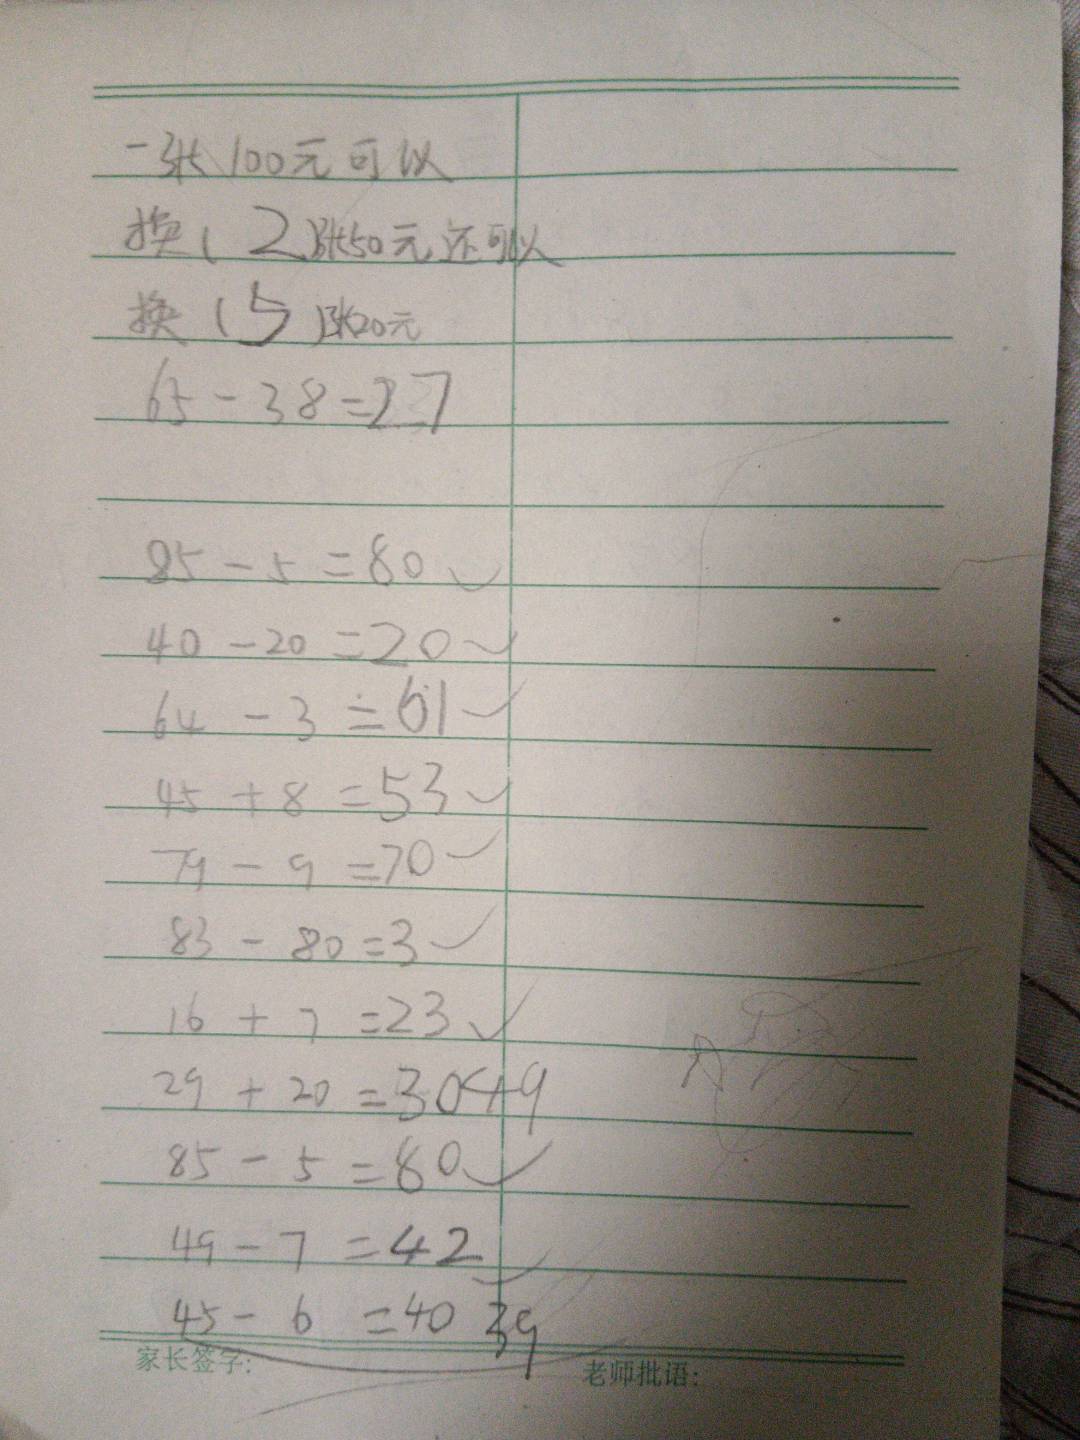 一张100元可以
换(2)张50元还可以
换(5)张20元
65-38=27
85-5=80
40-20=20
64-3=61
45+8=53
79-9=70
83-80=3
16+7=23
29+20=3049
85-5=80
49-7=42
45-6=40 39
家长签字:
老师批语: